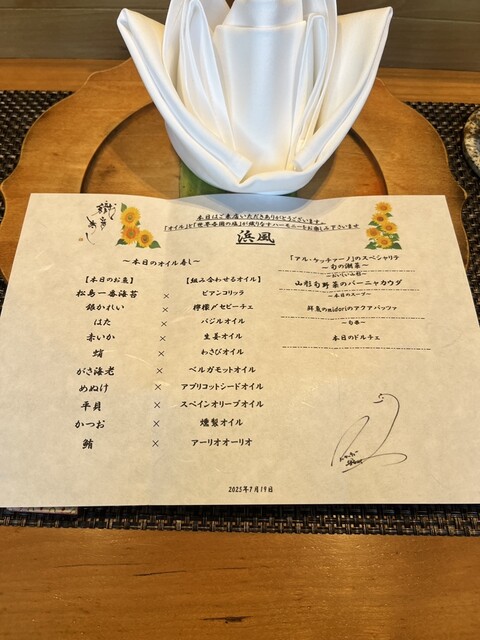 本日はご来店いただきありがとうございます。
「オイル」と「世界各国の塩」が織りなすハーモニーをお楽しみ下さいませ
浜風
～本日のオイル寿し～
【本日のお魚】 【組み合わせるオイル】
松島一番海苔 × ビアンコリッラ
銀かれい × 檸檬〆セビーチェ
はた × バジルオイル
赤いか × 生姜オイル
蛸 × わさびオイル
がさ海老 × ベルガモットオイル
めぬけ × アプリコットシードオイル
平貝 × スペインオリーブオイル
かつお × 燻製オイル
鮪 × アーリオオーリオ
「アル・ケッチァーノ」のスペシャリテ
～旬の潮菜～
～おいしい山形～
山形旬野菜のバーニャカウダ
～本日のスープ～
鮮魚のmidoriのアクアパッツァ
～旬香～
本日のドルチェ
2025年7月19日